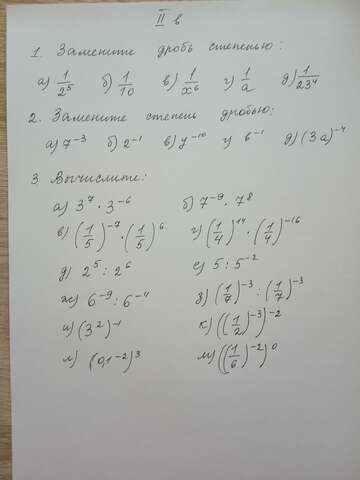 II в
1. Замените дробь степенью:
а) 1/2⁵ б) 1/10 в) 1/x⁶ г) 1/a д) 1/23⁴
2. Замените степень дробью:
а) 7⁻³ б) 2⁻¹ в) y⁻¹⁰ г) b⁻¹ д) (3a)⁻⁴
3. Вычислите:
а) 3⁷ · 3⁻⁶ б) 7⁻⁹ · 7⁸
в) (1/5)⁻⁷ · (1/5)⁶ г) (1/4)¹⁴ · (1/4)⁻¹⁶
д) 2⁵ : 2⁶ е) 5 : 5⁻²
ж) 6⁻⁹ : 6⁻¹¹ з) (1/7)⁻³ : (1/7)⁻³
и) (3²)⁻¹ к) ((1/2)⁻³)⁻²
л) (0,1⁻²)³ м) ((1/6)⁻²)⁰